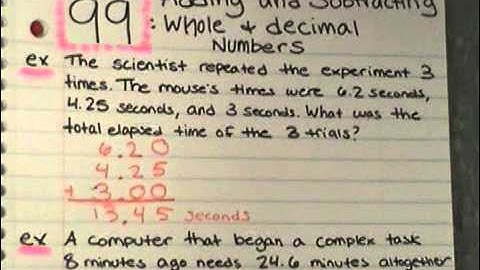 99 Adding and Subtracting
: Whole & decimal
Numbers
ex The scientist repeated the experiment 3
times. The mouse's times were 6.2 seconds,
4.25 seconds, and 3 seconds. What was the
total elapsed time of the 3 trials?
6.20
4.25
+ 3.00
13.45 seconds
ex A computer that began a complex task
8 minutes ago needs 24.6 minutes altogether